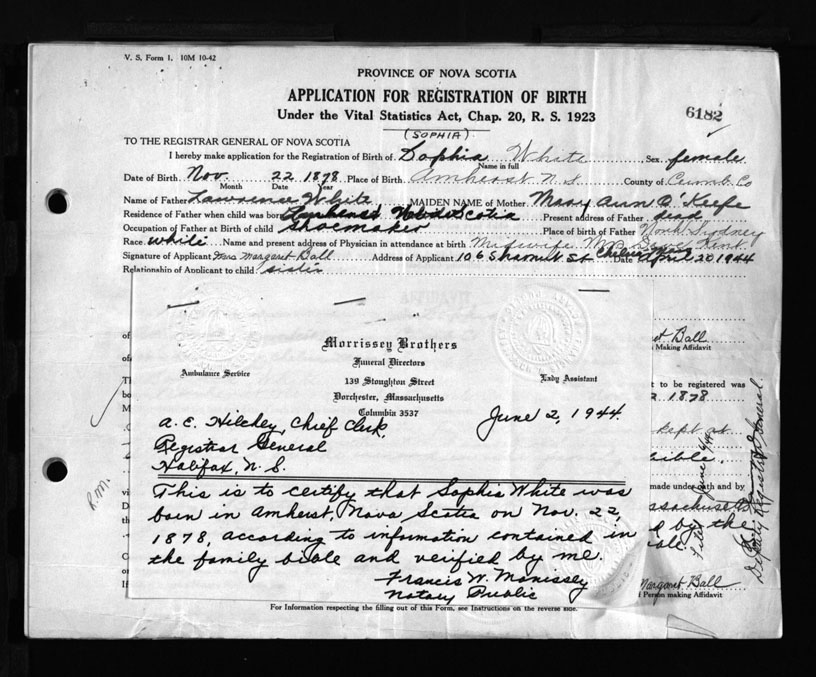 V. S. Form 1. 10M 10-42
PROVINCE OF NOVA SCOTIA
APPLICATION FOR REGISTRATION OF BIRTH
6182
Under the Vital Statistics Act, Chap. 20, R. S. 1923
(SOPHIA)
TO THE REGISTRAR GENERAL OF NOVA SCOTIA
I hereby make application for the Registration of Birth of Sophia White, Sex female
Name in full
Date of Birth Nov. 22 1878 Place of Birth Amherst N S County of Cumb. Co
Month Date Year
Name of Father Lawrence White MAIDEN NAME of Mother Mary Ann O'Keefe
Residence of Father when child was born Amherst Nova Scotia Present address of Father dead
Occupation of Father at Birth of child Shoemaker Place of birth of Father North Sydney
Race white Name and present address of Physician in attendance at birth Midwife Mrs Kent
Signature of Applicant Mrs Margaret Ball Address of Applicant 106 Shawmut St Chelsea Date April 20 1944
Relationship of Applicant to child sister
Morrissey Brothers
Funeral Directors
Ambulance Service
139 Stoughton Street
Lady Assistant
Dorchester, Massachusetts
Columbia 3537
June 2, 1944
A. E. Hilchey, Chief Clerk,
Registrar General
Halifax, N. S.
This is to certify that Sophia White was
born in Amherst, Nova Scotia on Nov. 22,
1878, according to information contained in
the family bible and verified by me.
Francis W. Morrissey
Notary Public
of
of
Ball
Making Affidavit
to be registered was
1878
kept at
made under oath and by
by the
Margaret Ball
of Person making Affidavit
Deputy Registrar General
June 6/44
R.M.
For Information respecting the filling out of this Form, see Instructions on the reverse side.